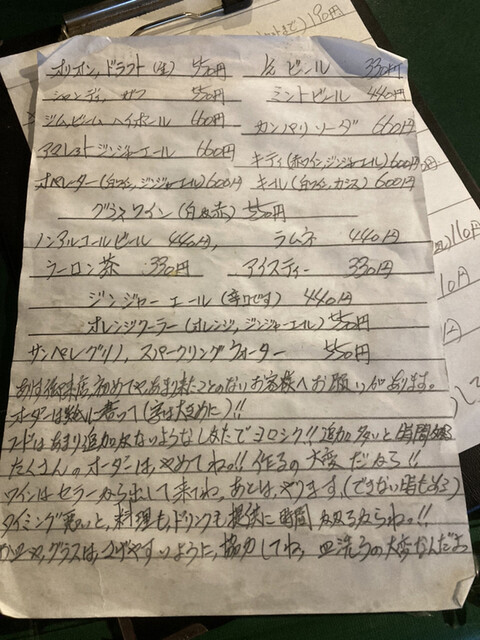 オリオン,ドラフト(生) 550円 1/2 ビール 330円
シャンディ,ガフ 550円 ミントビール 440円
ジムビーム ハイボール 660円 カンパリ,ソーダ 660円
アマレットジンジャーエール 660円 キティ(赤ワイン,ジンジャーエール)600円
オペレーター(白ワイン,ジンジャーエール)600円 キール(白ワイン,カシス)600円
グラスワイン(白&赤) 550円
ノンアルコールビール 440円, ラムネ 440円
ウーロン茶 330円 アイスティー 330円
ジンジャーエール(辛口です) 440円
オレンジクーラー(オレンジ,ジンジャーエール) 550円
サンペレグリノ,スパークリングウォーター 550円
初めてやあまり来たことのないお客様へお願いがあります。
オーダーは紙に書って(字は大きめに)!!
フードはあまり追加しないようなしかたでヨロシク!!追加多いと時間
たくさんのオーダーは,やめてね!!作るの大変だから!!
ワインはセラーから出して来てね,あとは,やります,(できない時もある)
タイミング悪いと,料理も,ドリンクも提供に時間かかるからね!!
お皿や,グラスは,さげやすいように,協力してね,皿洗うの大変なんだよ
190円
110円
10円